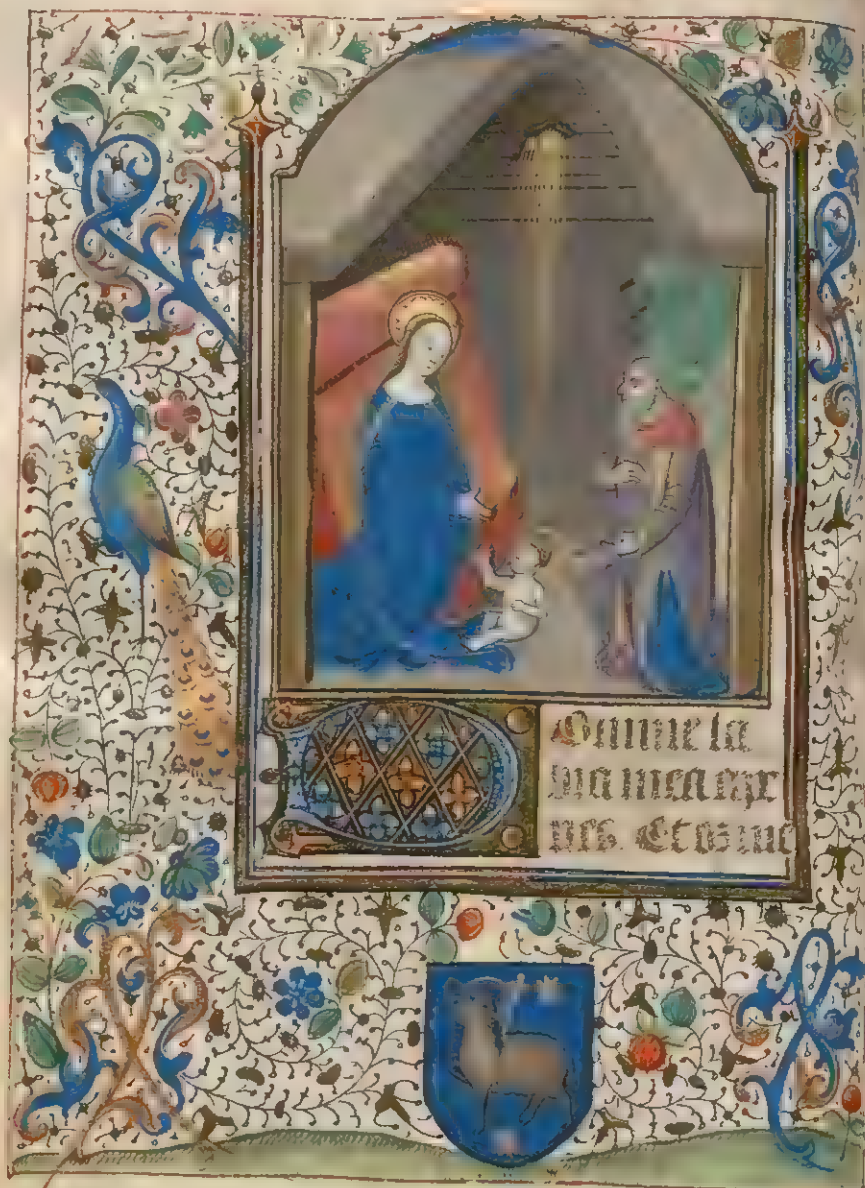 DOmine la
bia mea ape
ries. Et os me